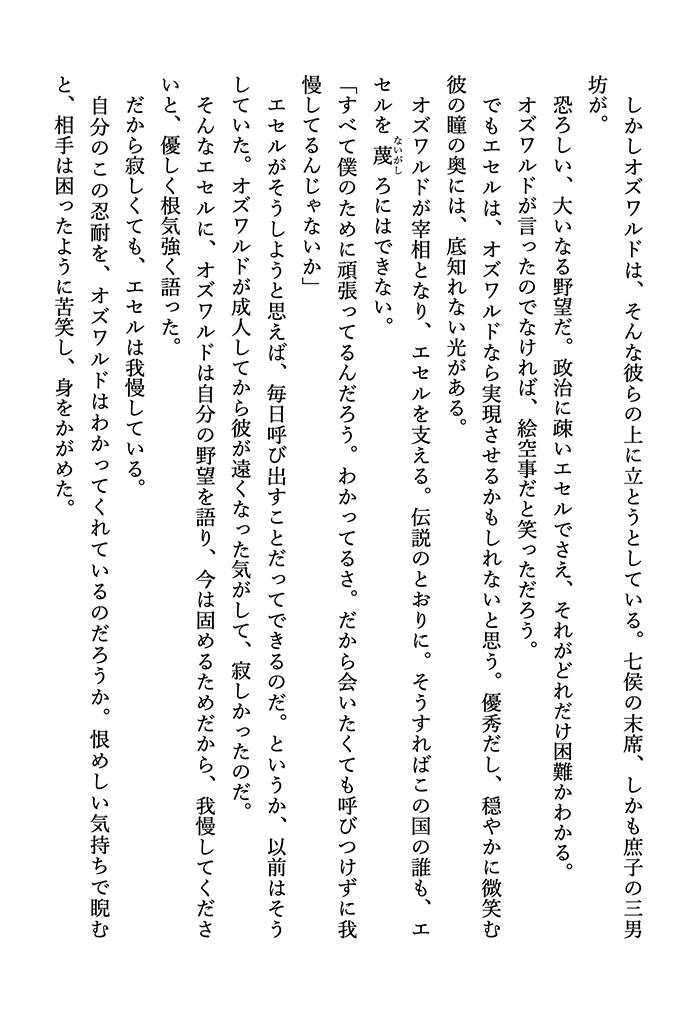 しかしオズワルドは、そんな彼らの上に立とうとしている。七侯の末席、しかも庶子の三男
坊が。
　恐ろしい、大いなる野望だ。政治に疎いエセルでさえ、それがどれだけ困難かわかる。
　オズワルドが言ったのでなければ、絵空事だと笑っただろう。
　でもエセルは、オズワルドなら実現させるかもしれないと思う。優秀だし、穏やかに微笑む
彼の瞳の奥には、底知れない光がある。
　オズワルドが宰相となり、エセルを支える。伝説のとおりに。そうすればこの国の誰も、エ
セルを蔑ないがしろにはできない。
「すべて僕のために頑張ってるんだろう。わかってるさ。だから会いたくても呼びつけずに我
慢してるんじゃないか」
　エセルがそうしようと思えば、毎日呼び出すことだってできるのだ。というか、以前はそう
していた。オズワルドが成人してから彼が遠くなった気がして、寂しかったのだ。
　そんなエセルに、オズワルドは自分の野望を語り、今は固めるためだから、我慢してくださ
いと、優しく根気強く語った。
　だから寂しくても、エセルは我慢している。
　自分のこの忍耐を、オズワルドはわかってくれているのだろうか。恨めしい気持ちで睨む
と、相手は困ったように苦笑し、身をかがめた。